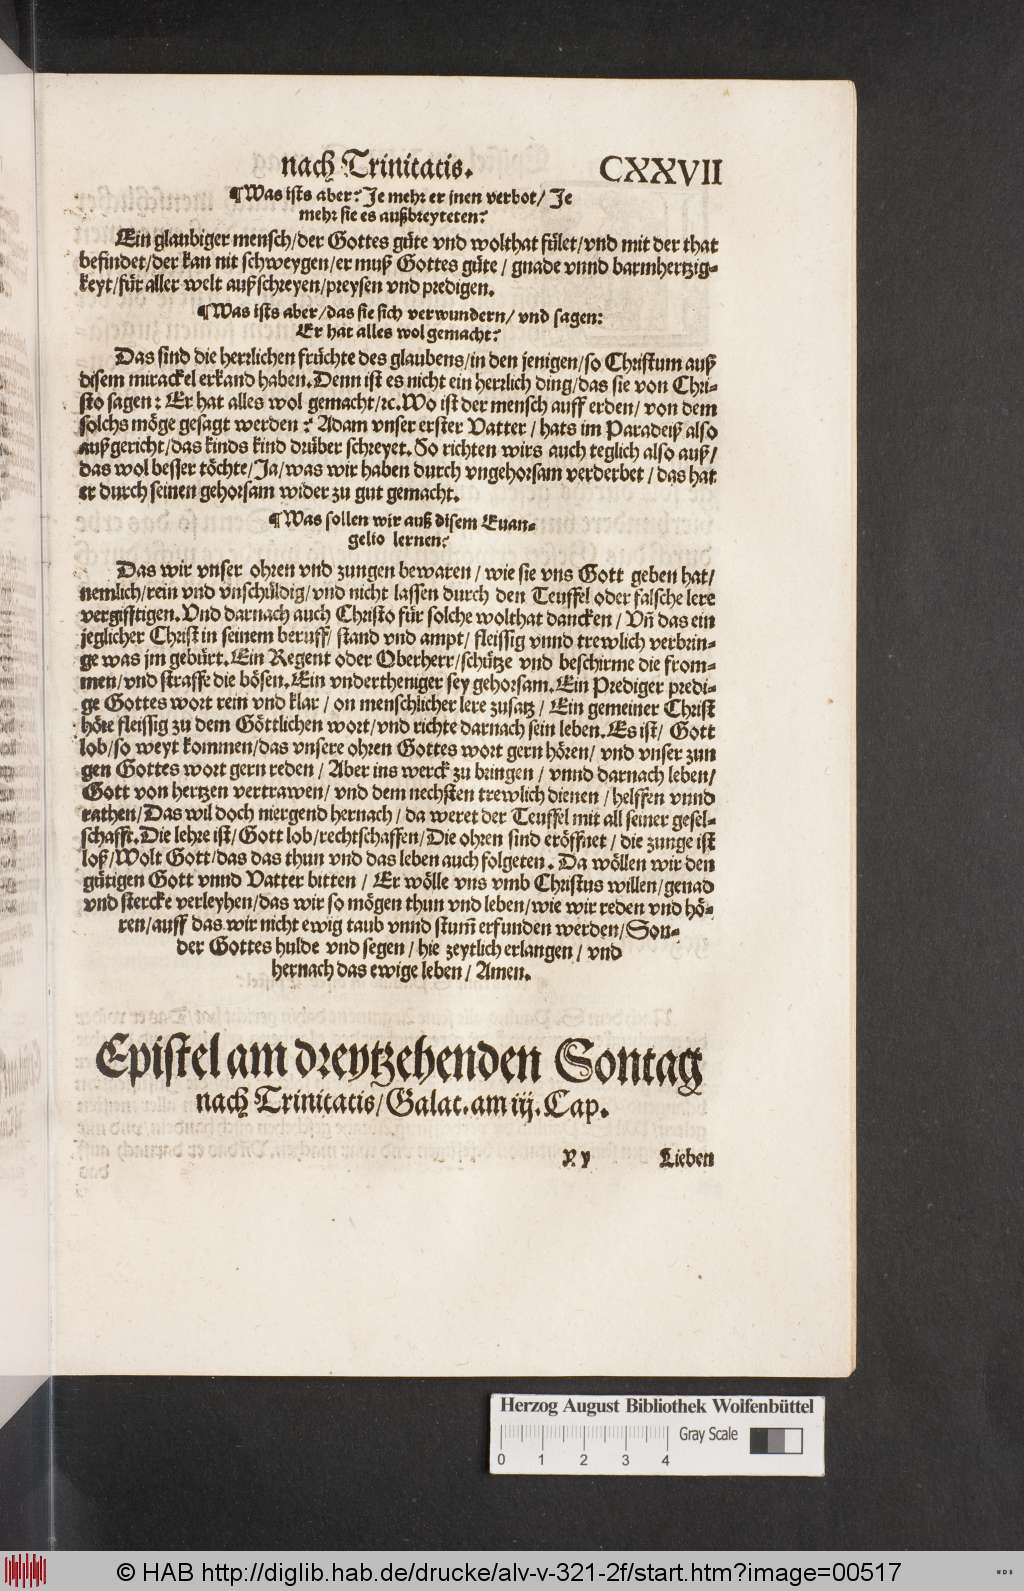 nach Trinitatis. CXXVII
¶Was ists aber? Je mehr er jnen verbot/ Je
mehr sie es außbreyteten?
Ein glaubiger mensch/der Gottes güte vnd wolthat fület/vnd mit der that
befindet/der kan nit schweygen/er muß Gottes güte / gnade vnnd barmhertzig-
keyt/für aller welt außschreyen/preysen vnd predigen.
¶Was ists aber/das sie sich verwundern/ vnd sagen:
Er hat alles wol gemacht?
Das sind die herrlichen früchte des glaubens/in den jenigen/so Christum auß
disem mirackel erkand haben.Denn ist es nicht ein herrlich ding/das sie von Chri-
sto sagen: Er hat alles wol gemacht/ꝛc.Wo ist der mensch auff erden/ von dem
solchs möge gesagt werden? Adam vnser erster Vatter / hats im Paradeiß also
außgericht/das kinds kind drüber schreyet. So richten wirs auch teglich also auß/
das wol besser töchte/Ja/was wir haben durch vngehorsam verderbet / das hat
er durch seinen gehorsam wider zu gut gemacht.
¶Was sollen wir auß disem Euan-
gelio lernen?
Das wir vnser ohren vnd zungen bewaren / wie sie vns Gott geben hat/
nemlich/rein vnd vnschüldig/vnd nicht lassen durch den Teuffel oder falsche lere
vergifftigen.Vnd darnach auch Christo für solche wolthat dancken / Vñ das ein
jeglicher Christ in seinem beruff/ stand vnd ampt/ fleissig vnnd trewlich verbrin-
ge was jm gebürt.Ein Regent oder Oberherr/schütze vnd beschirme die from-
men/vnd straffe die bösen.Ein vndertheniger sey gehorsam.Ein Prediger predi-
ge Gottes wort rein vnd klar / on menschlicher lere zusatz / Ein gemeiner Christ
höre fleissig zu dem Göttlichen wort/vnd richte darnach sein leben.Es ist/ Gott
lob/so weyt kommen/das vnsere ohren Gottes wort gern hören/ vnd vnser zun
gen Gottes wort gern reden / Aber ins werck zu bringen / vnnd darnach leben/
Gott von hertzen vertrawen/ vnd dem nechsten trewlich dienen / helffen vnnd
rathen/Das wil doch niergend hernach / da weret der Teuffel mit all seiner gesel-
schafft.Die lehre ist/Gott lob/rechtschaffen/Die ohren sind eröffnet / die zunge ist
loß/Wolt Gott/das das thun vnd das leben auch folgeten. Da wöllen wir den
gütigen Gott vnnd Vatter bitten / Er wölle vns vmb Christus willen/genad
vnd stercke verleyhen/das wir so mögen thun vnd leben/wie wir reden vnd hö-
ren/auff das wir nicht ewig taub vnnd stum̃ erfunden werden/Son-
der Gottes hulde vnd segen / hie zeytlich erlangen / vnd
hernach das ewige leben / Amen.
Epistel am dreytzehenden Sontag
nach Trinitatis/Galat.am iij.Cap.
Y y Lieben
Herzog August Bibliothek Wolfenbüttel
Gray Scale
0 1 2 3 4
© HAB http://diglib.hab.de/drucke/alv-v-321-2f/start.htm?image=00517